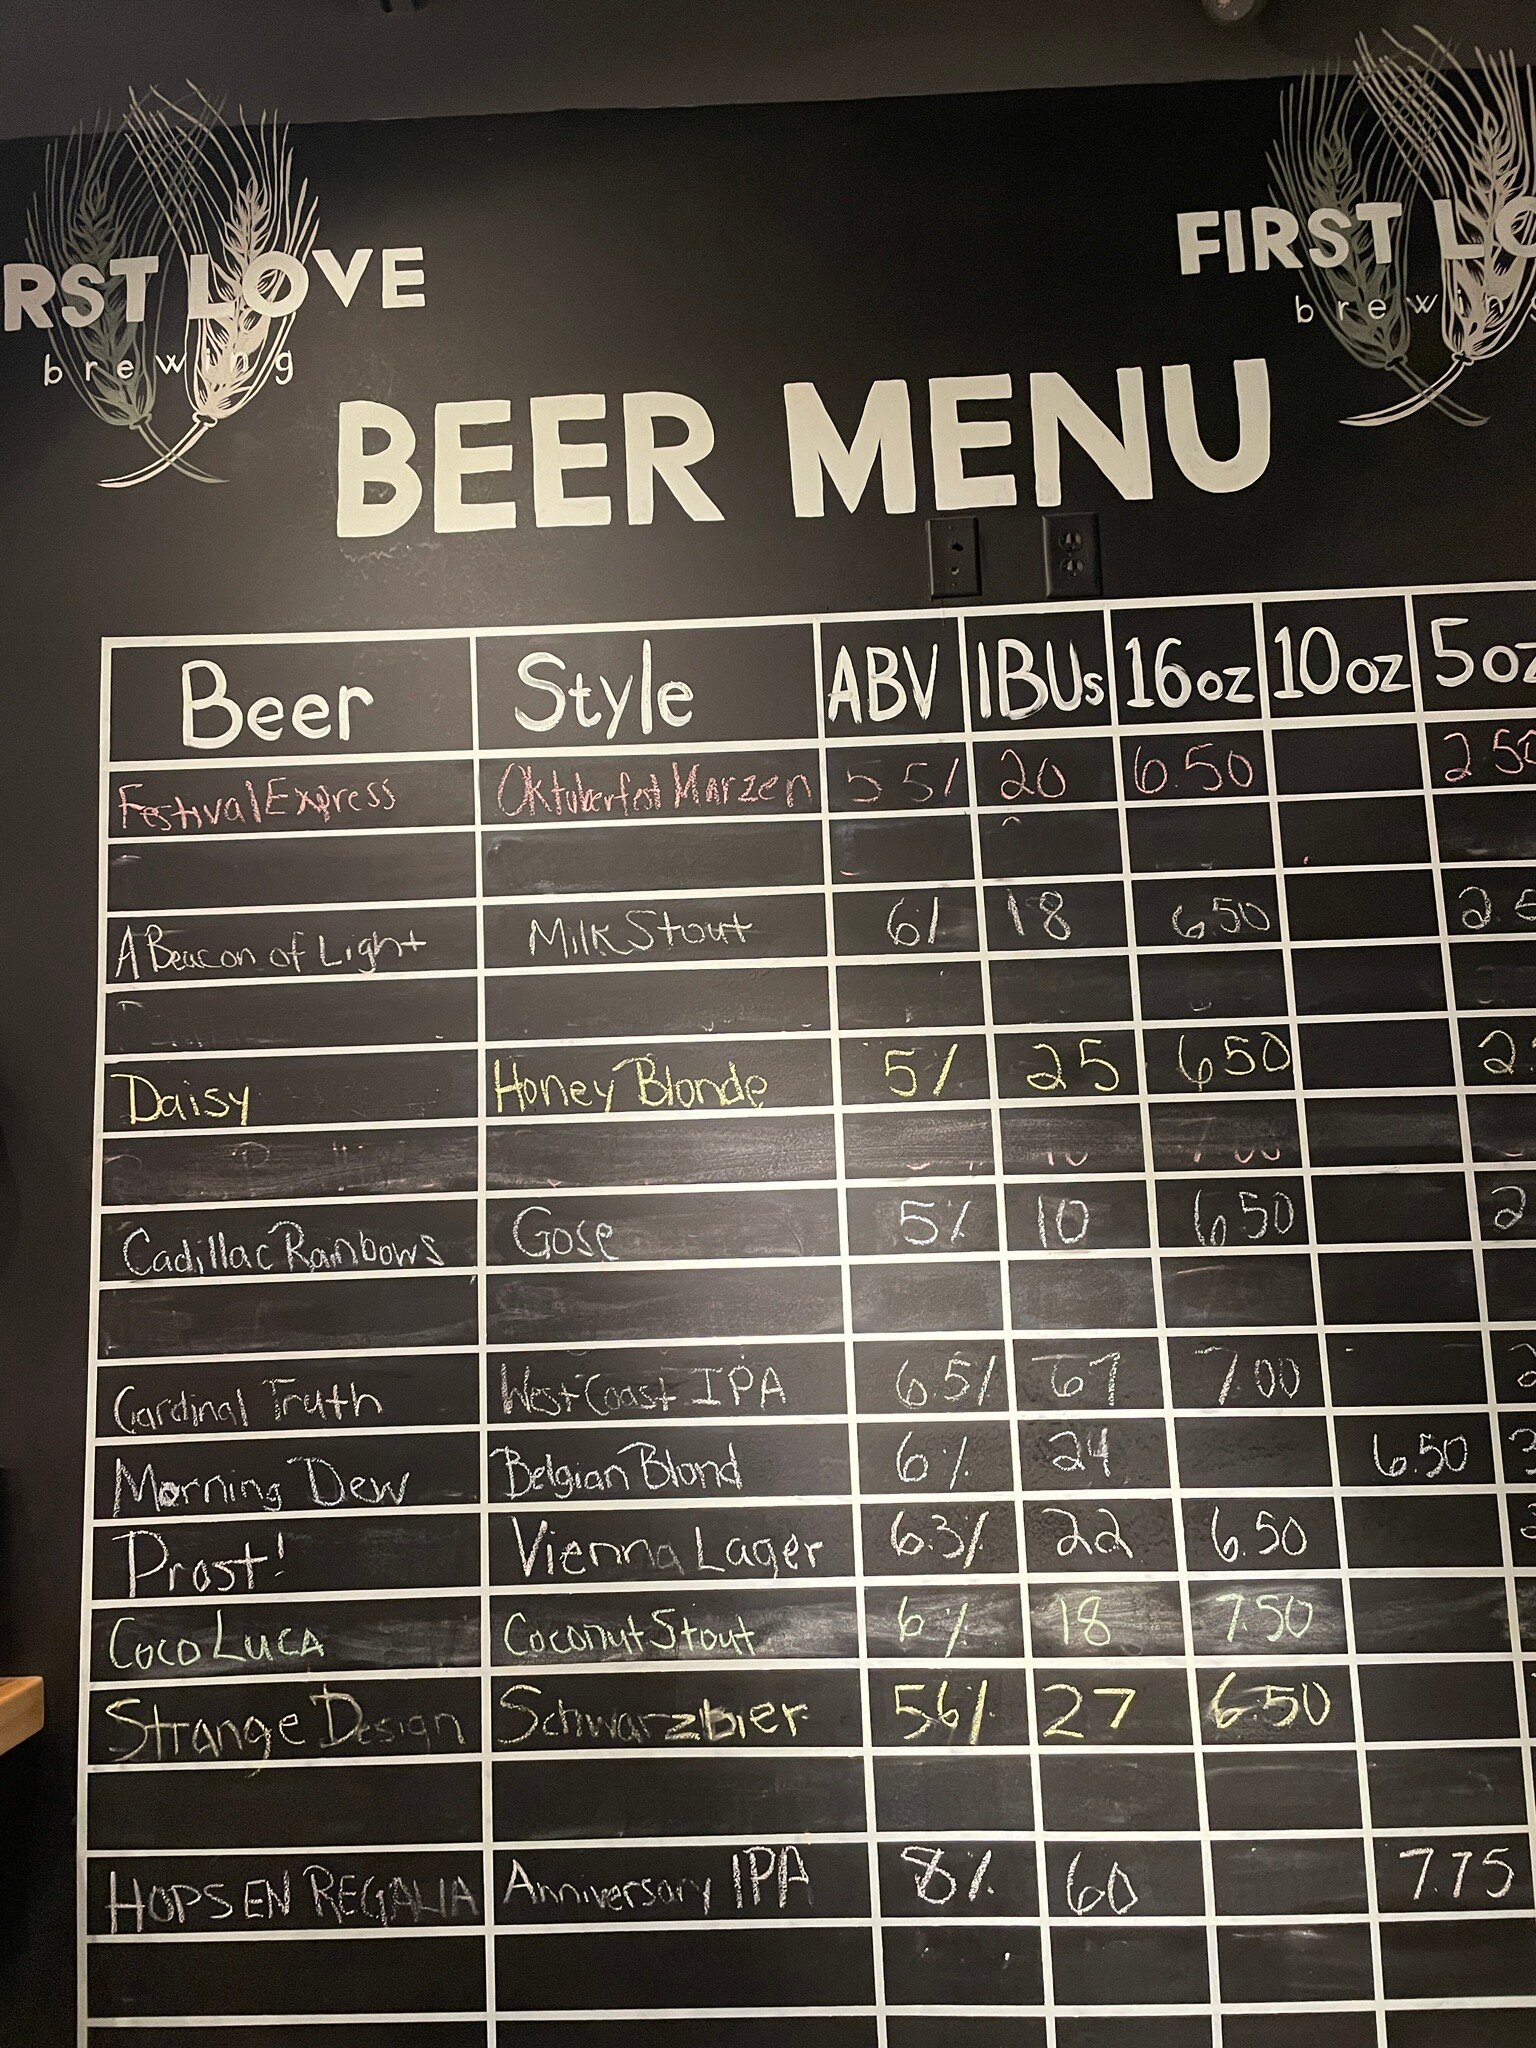 RST LOVE
brewing
FIRST LO
brewing
BEER MENU
Beer Style ABV IBUs 16oz 10oz 5oz
Festival Express Oktuberfest Marzen 5.5% 20 6.50 2.50
A Beacon of Light Milk Stout 6% 18 6.50 2.5
Daisy Honey Blonde 5% 25 6.50 2.
Cadillac Rainbows Gose 5% 10 6.50 2
Cardinal Truth West Coast IPA 6.5% 67 7.00 2
Morning Dew Belgian Blond 6% 24 6.50 3
Prost! Vienna Lager 6.3% 22 6.50 3
Coco Luca Coconut Stout 6% 18 7.50
Strange Design Schwarzbier 5.6% 27 6.50
HOPS EN REGALIA Anniversary IPA 8% 60 7.75